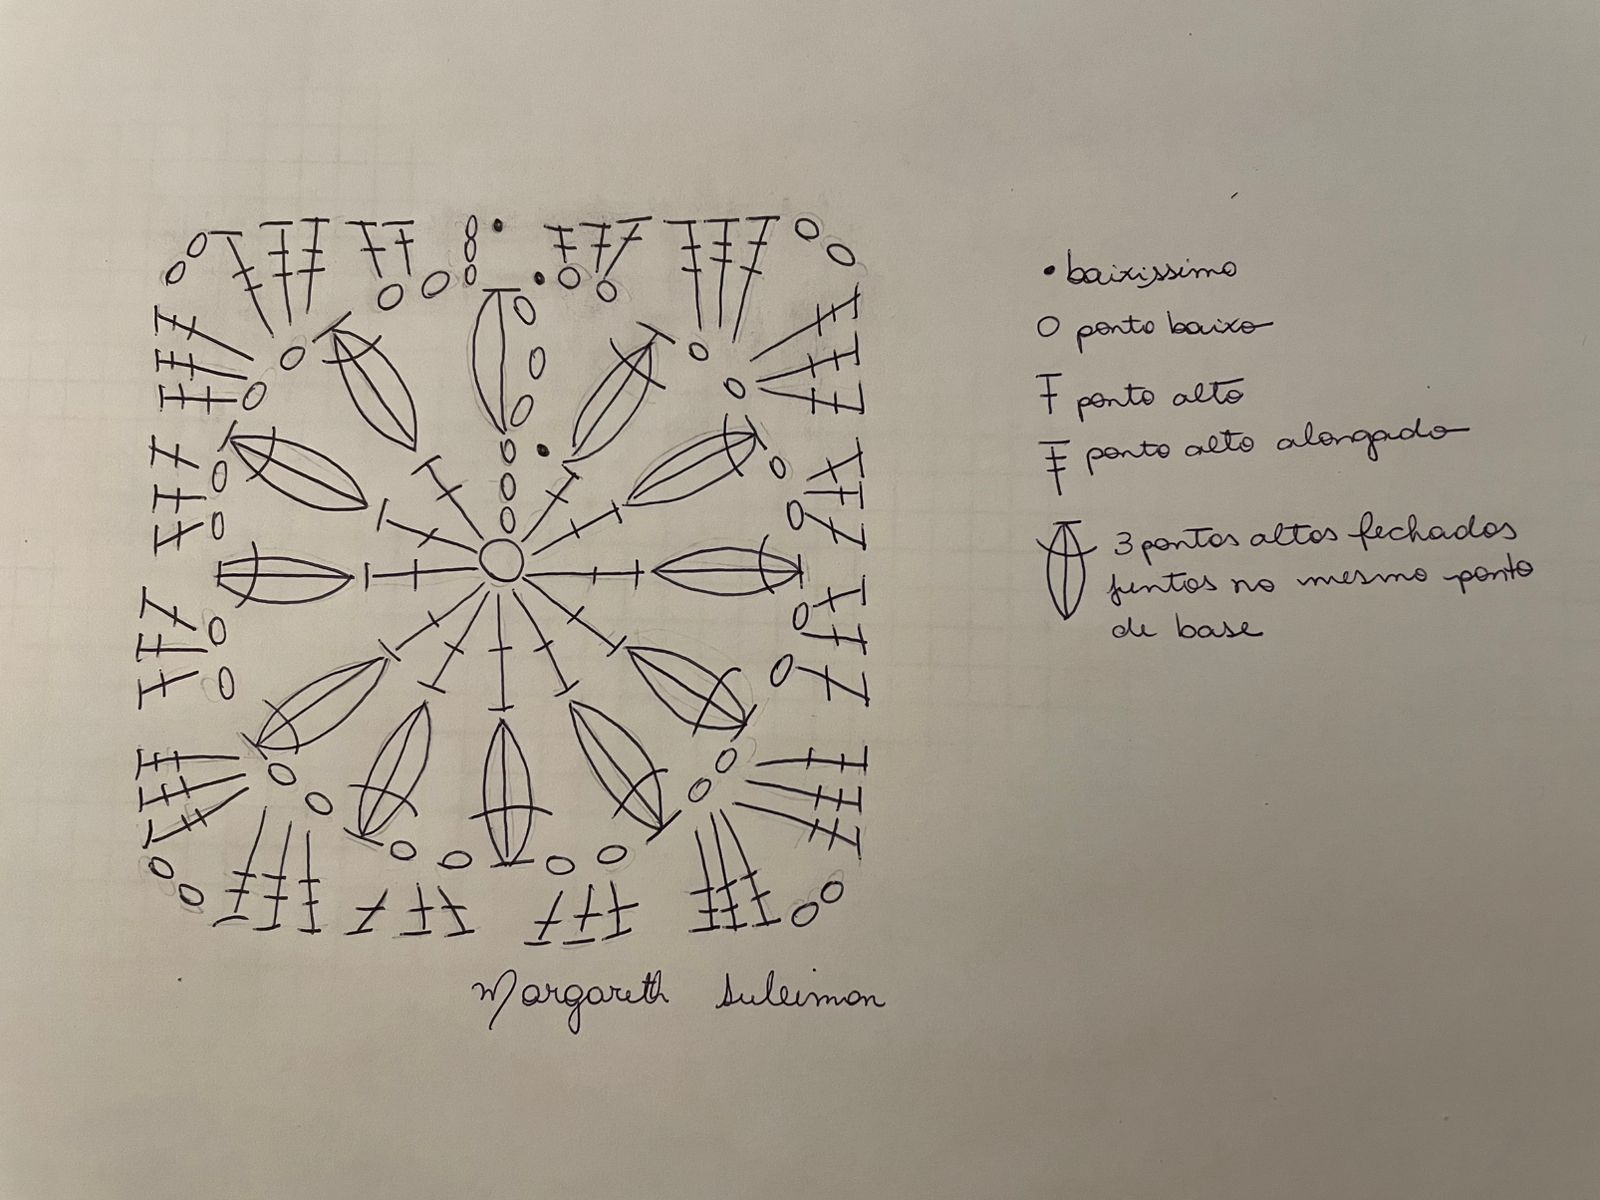 baixissimo
ponto baixo
ponto alto
ponto alto alongado
3 pontos altos fechados
juntos no mesmo ponto
de base
Margareth Suleiman